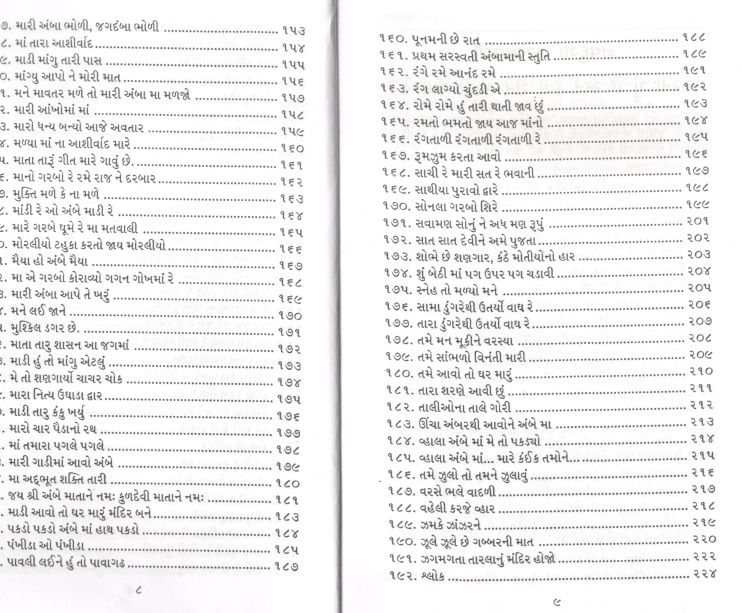 ૭. મારી અંબા ભોળી, જગદંબા ભોળી ૧૫૩
૮. માં તારા આશીર્વાદ ૧૫૪
૯. માડી માંગુ તારી પાસ ૧૫૫
૦. માંગ્યુ આપો ને મોરી માત ૧૫૬
૧. મને માવતર મળે તો મારી અંબા મા મળજો ૧૫૭
૨. મારી આંખોમાં માં ૧૫૮
૩. મારો ધન્ય બન્યો આજે અવતાર ૧૫૯
૪. મળ્યા માં ના આશીર્વાદ મારે ૧૬૦
૫. માતા તારૂં ગીત મારે ગાવું છે. ૧૬૧
૬. માનો ગરબો રે રમે રાજ ને દરબાર ૧૬૨
૭. મુક્તિ મળે કે ના મળે ૧૬૩
૮. માંડી રે ઓ અંબે માડી રે ૧૬૪
૯. મારે ગરબે ઘૂમે રે મા મતવાલી ૧૬૫
૦. મોરલીયો ટહુકા કરતો જાય મોરલીયો ૧૬૬
. મૈયા હો અંબે મૈયા ૧૬૭
. મા એ ગરબો કોરાવ્યો ગગન ગોખમાં રે ૧૬૮
. મારી અંબા આપે તે ખરું ૧૬૯
. મને લઈ જાને ૧૭૦
. મુશ્કિલ ડગર છે. ૧૭૧
. માતા તારુ શાસન આ જગમાં ૧૭૨
. માડી હું તો માંગુ એટલું ૧૭૩
. મે તો શણગાર્યો ચાચર ચોક ૧૭૪
. મારા નિત્ય ઉઘાડા દ્વાર ૧૭૫
. માડી તારુ કંકુ ખર્યુ ૧૭૬
. મારો ચાર પૈડાનો રથ ૧૭૭
. માં તમારા પગલે પગલે ૧૭૮
. મારી ગાડીમાં આવો અંબે ૧૭૯
. મા અદ્ભૂત શક્તિ તારી ૧૮૦
. જય શ્રી અંબે માતાને નમઃ કુળદેવી માતાને નમઃ ૧૮૧
. માડી આવો તો ઘર મારું મંદિર બને ૧૮૩
. પકડો પકડો અંબે માં હાથ પકડો ૧૮૪
. પંખીડા ઓ પંખીડા ૧૮૫
. પાવલી લઈને હું તો પાવાગઢ ૧૮૭
૮
૧૬૦. પૂનમની છે રાત ૧૮૮
૧૬૧. પ્રથમ સરસ્વતી અંબામાની સ્તુતિ ૧૮૯
૧૬૨. રંગે રમે આનંદ રમે ૧૯૧
૧૬૩. રંગ લાગ્યો ચુંદડી એ ૧૯૨
૧૬૪. રોમે રોમે હું તારી થાતી જાવ છું ૧૯૩
૧૬૫. રમતો ભમતો જાય આજ માંનો ૧૯૪
૧૬૬. રંગતાળી રંગતાળી રંગતાળી રે ૧૯૫
૧૬૭. રૂમઝુમ કરતા આવો ૧૯૬
૧૬૮. સાચી રે મારી સત રે ભવાની ૧૯૭
૧૬૯. સાથીયા પુરાવો દ્વારે ૧૯૮
૧૭૦. સોનલા ગરબો શિરે ૧૯૯
૧૭૧. સવામણ સોનું ને અધ મણ રૂપું ૨૦૧
૧૭૨. સાત સાત દેવીને અમે પુજતા ૨૦૨
૧૭૩. શોભે છે શણગાર, કંઠે મોતીયોનો હાર ૨૦૩
૧૭૪. શું બેઠી માં પગ ઉપર પગ ચડાવી ૨૦૪
૧૭૫. સ્નેહ તો મળ્યો મને ૨૦૫
૧૭૬. સામા ડુંગરેથી ઉતર્યો વાઘ રે ૨૦૬
૧૭૭. તારા ડુંગરેથી ઉતર્યો વાઘ રે ૨૦૭
૧૭૮. તમે મન મૂકીને વરસ્યા ૨૦૮
૧૭૯. તમે સાંભળો વિનંતી મારી ૨૦૯
૧૮૦. તમે આવો તો ઘર મારું ૨૧૦
૧૮૧. તારા શરણે આવી છું ૨૧૧
૧૮૨. તાલીઓના તાલે ગોરી ૨૧૨
૧૮૩. ઊંચા અંબરથી આવોને અંબે મા ૨૧૩
૧૮૪. વ્હાલા અંબે માં મે તો પકડ્યો ૨૧૪
૧૮૫. વ્હાલા અંબે માં... મારે કંઈક તમોને ૨૧૫
૧૮૬. તમે ઝુલો તો તમને ઝુલાવું ૨૧૬
૧૮૭. વરસે ભલે વાદળી ૨૧૭
૧૮૮. વહેલી કરજે વ્હાર ૨૧૮
૧૮૯. ઝમકે ઝાંઝરને ૨૧૯
૧૯૦. ઝૂલે ઝૂલે છે ગબ્બરની માત ૨૨૦
૧૯૧. ઝગમગતા તારલાનું મંદિર હોજો ૨૨૨
૧૯૨. શ્લોક ૨૨૪
૯